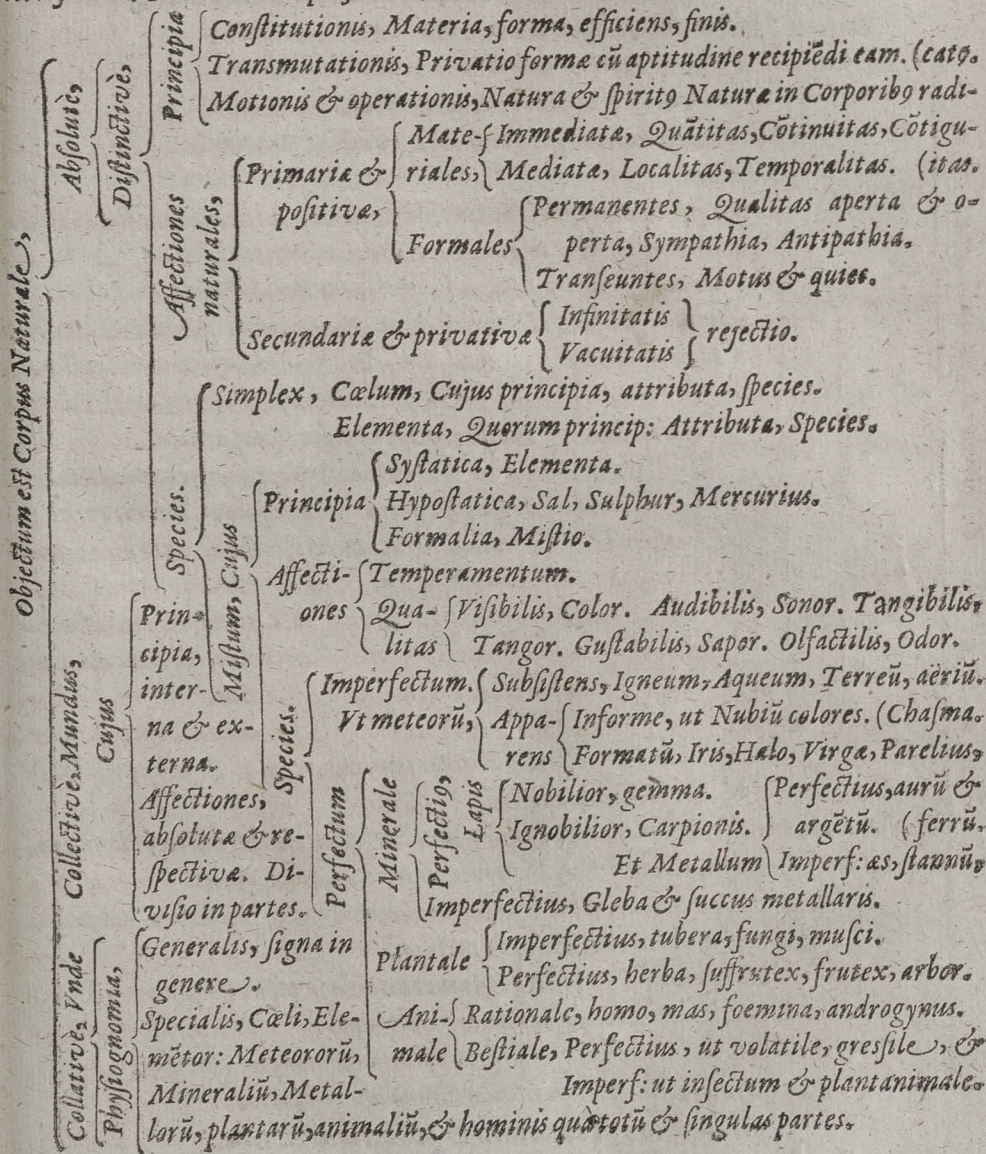 Objectum est Corpus Naturale,
Absolutè,
Distinctivè,
Principia
Constitutionis, Materia, forma, efficiens, finis.
Transmutationis, Privatio formæ cū aptitudine recipiēdi eam. (catꝰ.
Motionis & operationis, Natura & spiritꝰ Naturæ in Corporibꝰ radi-
Affectiones
naturales,
Primariæ &
positivæ,
Mate-
riales,
Immediatæ, Quātitas, Cōtinuitas, Cōtigu-
Mediatæ, Localitas, Temporalitas. (itas.
Formales
Permanentes, Qualitas aperta & o-
perta, Sympathia, Antipathia.
Transeuntes, Motus & quies.
Secundariæ & privativæ
Infinitatis
Vacuitatis
rejectio.
Species.
Simplex, Cœlum, Cujus principia, attributa, species.
Elementa, Quorum princip: Attributa, Species.
Mistum, Cujus
Principia
Systatica, Elementa.
Hypostatica, Sal, Sulphur, Mercurius.
Formalia, Mistio.
Affecti-
ones
Temperamentum.
Qua-
litas
Visibilis, Color. Audibilis, Sonor. Tangibilis,
Tangor. Gustabilis, Sapor. Olfactilis, Odor.
Species.
Imperfectum.
Vt meteorū,
Subsistens, Igneum, Aqueum, Terreū, aëriū.
Appa-
rens
Informe, ut Nubiū colores. (Chasma.
Formatū, Iris, Halo, Virgæ, Parelius,
Perfectum
Minerale
Perfectiꝰ,
Lapis
Nobilior, gemma.
Ignobilior, Carpionis.
Et Metallum
Perfectius, aurū &
argētū. (ferrū.
Imperf: æs, stannū,
Imperfectius, Gleba & succus metallaris.
Plantale
Imperfectius, tubera, fungi, musci.
Perfectius, herba, suffrutex, frutex, arbor.
Ani-
male
Rationale, homo, mas, foemina, androgynus.
Bestiale, Perfectius, ut volatile, gressile, &
Imperf: ut insectum & plantanimale.
Collectivè, Mundus,
Cujus
Prin-
cipia,
inter-
na & ex-
terna.
Affectiones,
absolutæ & re-
spectivæ. Di-
visio in partes.
Collativè, Vnde
Physiognomia,
Generalis, signa in
genere.
Specialis, Cœli, Ele-
mētor: Meteororū,
Mineraliū, Metal-
lorū, plantarū, animaliū, & hominis quo totū & singulas partes.